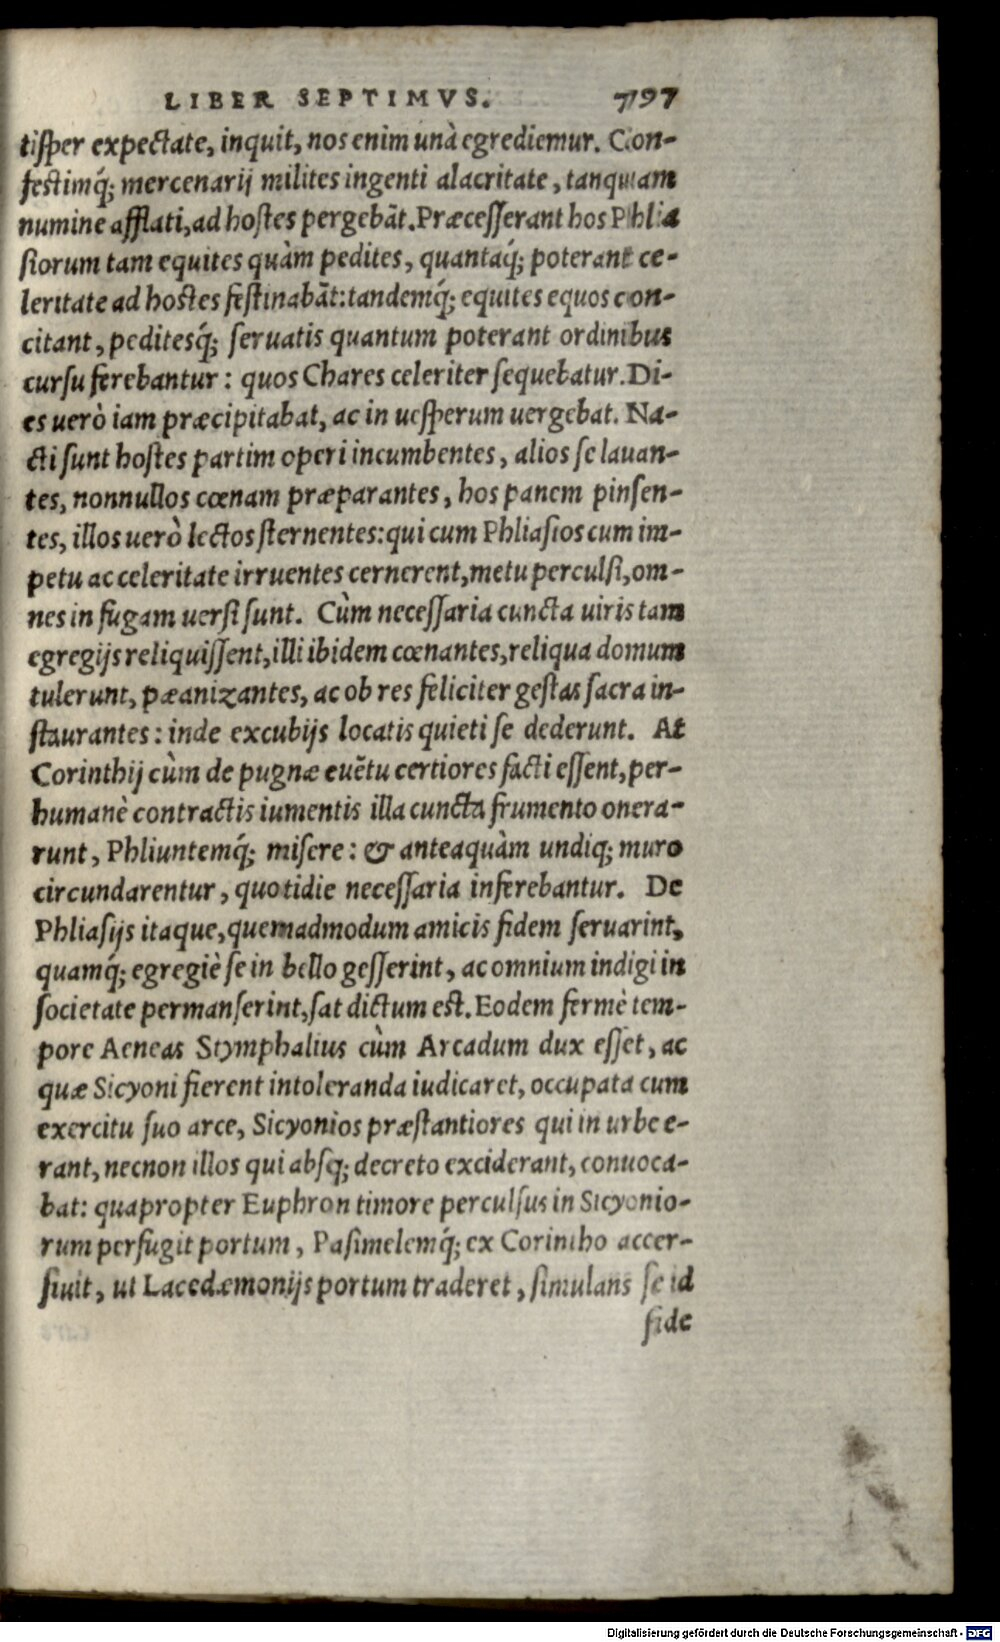 LIBER SEPTIMVS. 797
tiſper expectate, inquit, nos enim unà egrediemur. Con-
feſtimq́; mercenarij milites ingenti alacritate, tanquam
numine afflati, ad hoſtes pergebāt. Præceſſerant hos Phlia
ſiorum tam equites quàm pedites, quantaq́; poterant ce-
leritate ad hoſtes feſtinabāt: tandemq́; equites equos con-
citant, peditesq́; ſeruatis quantum poterant ordinibus
curſu ferebantur: quos Chares celeriter ſequebatur. Di-
es uerò iam præcipitabat, ac in ueſperum uergebat. Na-
cti ſunt hoſtes partim operi incumbentes, alios ſe lauan-
tes, nonnullos cœnam præparantes, hos panem pinſen-
tes, illos uerò lectos ſternentes: qui cum Phliaſios cum im-
petu ac celeritate irruentes cernerent, metu perculſi, om-
nes in fugam uerſi ſunt. Cùm neceſſaria cuncta uiris tam
egregijs reliquiſſent, illi ibidem cœnantes, reliqua domum
tulerunt, pæanizantes, ac ob res feliciter geſtas ſacra in-
ſtaurantes: inde excubijs locatis quieti ſe dederunt. At
Corinthij cùm de pugnæ euētu certiores facti eſſent, per-
humanè contractis iumentis illa cuncta frumento onera-
runt, Phliuntemq́; miſere: & anteaquàm undiq; muro
circundarentur, quotidie neceſſaria inferebantur. De
Phliaſijs itaque, quemadmodum amicis fidem ſeruarint,
quamq́; egregiè ſe in bello geſſerint, ac omnium indigi in
ſocietate permanſerint, ſat dictum eſt. Eodem fermè tem-
pore Aeneas Stymphalius cùm Arcadum dux eſſet, ac
quæ Sicyoni fierent intoleranda iudicaret, occupata cum
exercitu ſuo arce, Sicyonios præſtantiores qui in urbe e-
rant, necnon illos qui abſq; decreto exciderant, conuoca-
bat: quapropter Euphron timore perculſus in Sicyonio-
rum perfugit portum, Paſimelemq́; ex Corintho accer-
ſiuit, ut Lacedæmonijs portum traderet, ſimulans ſe id
fide
Digitalisierung gefördert durch die Deutsche Forschungsgemeinschaft - DFG